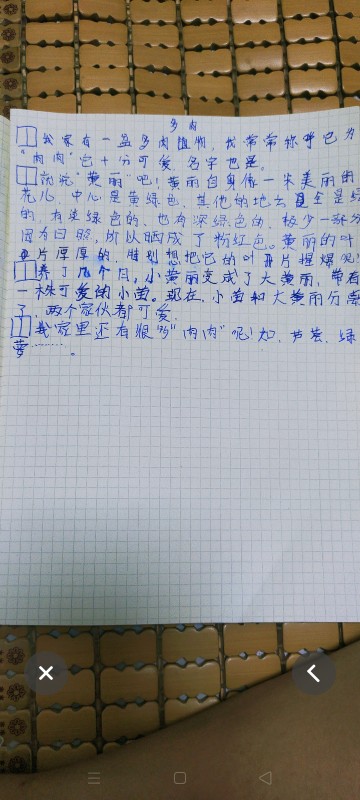 多肉
我家有一盆多肉植物，我常常称呼它为
“肉肉”它十分可爱，名字也是。
就说“黄丽”吧，黄丽自身像一朵美丽的
花儿，中心是黄绿色，其他的地方全是绿
的，有浅绿色的，也有深绿色的，极少一部分
因为日照，所以晒成了粉红色。黄丽的叶
片厚厚的，特别想把它的叶片捏爆呢！
养了几个月，小黄丽变成了大黄丽，带着
一株可爱的小苗。现在，小苗和大黄丽分离
了，两个家伙都可爱。
我家里还有很多“肉肉”呢！如，芦荟、绿
萝……。